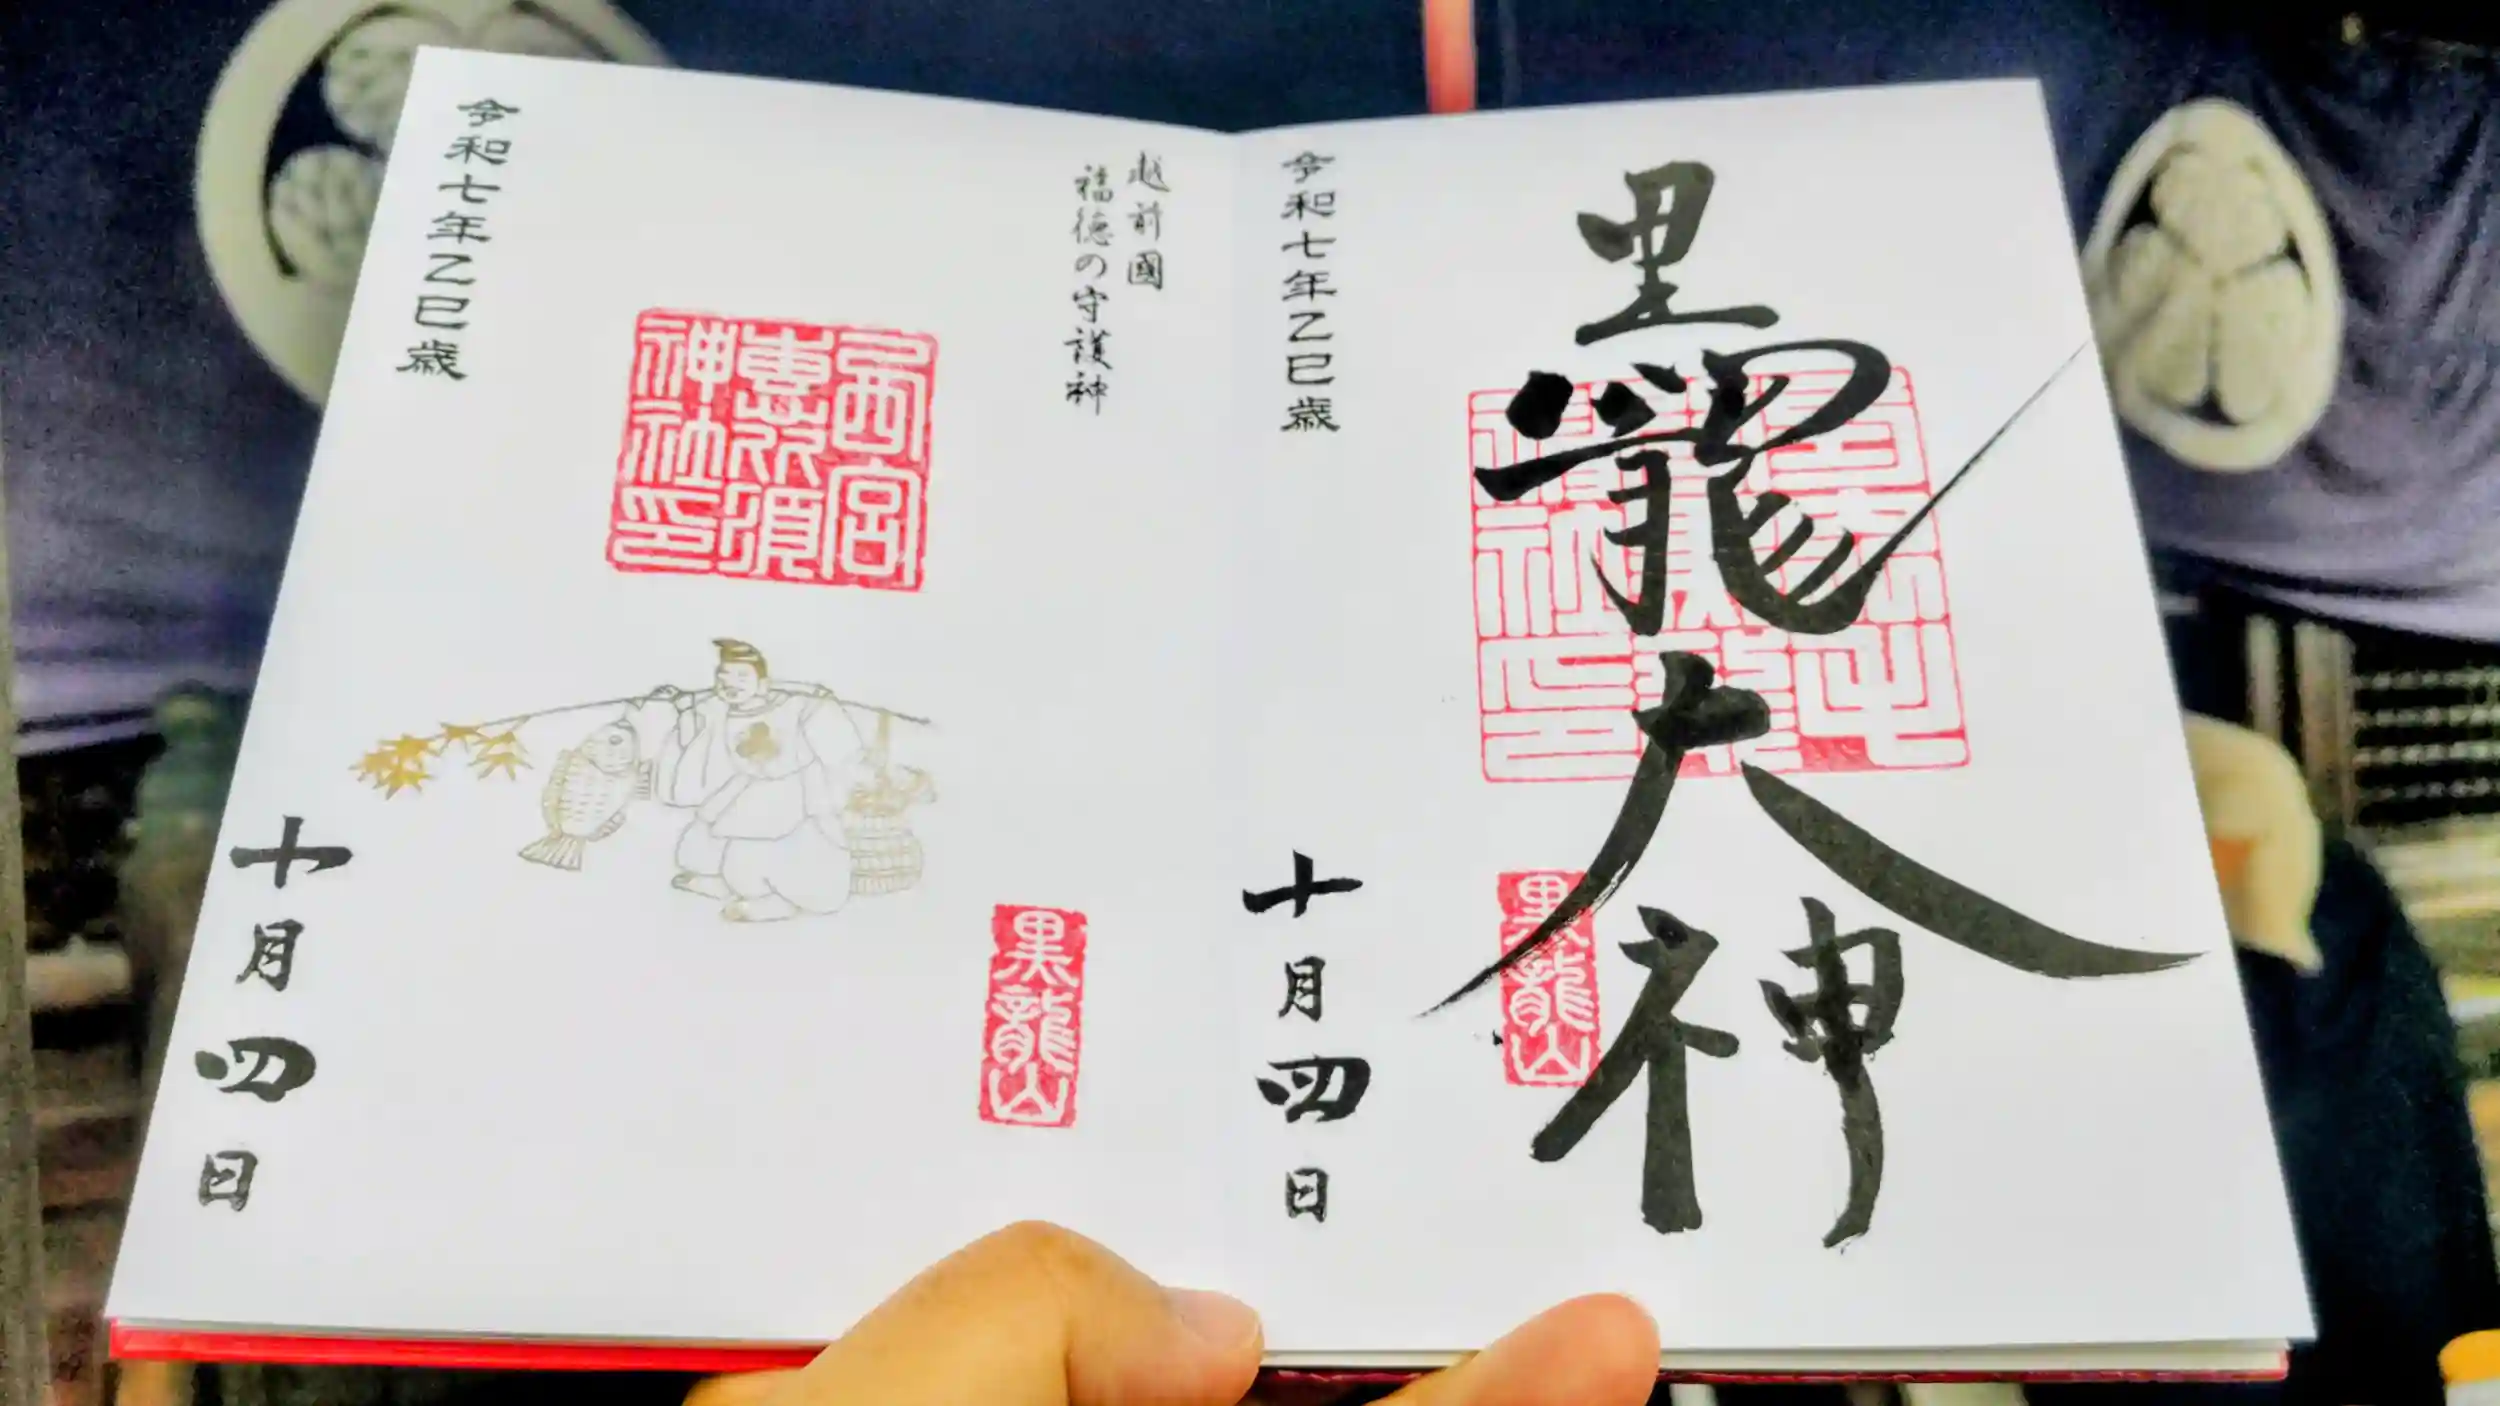 黒龍大神
黒龍山
令和七年乙巳歳
十月四日
越前國
福徳の守護神
西宮
恵比須
神社印
黒龍山
令和七年乙巳歳
十月四日